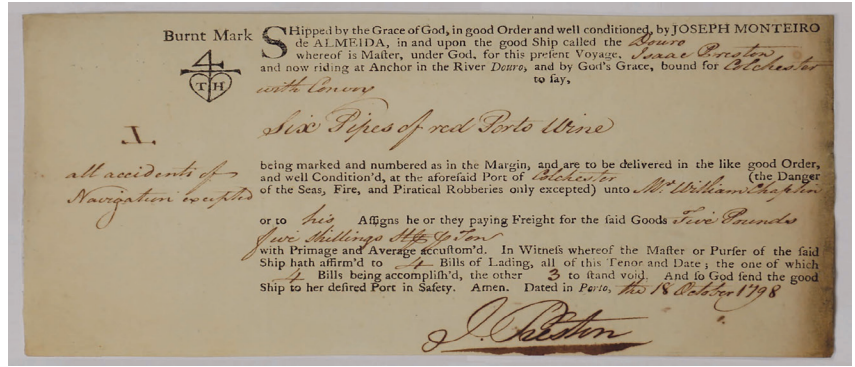 Burnt Mark
4
T H
L
all accidents of
Navigation excepted
SHipped by the Grace of God, in good Order and well conditioned, by JOSEPH MONTEIRO
de ALMEIDA, in and upon the good Ship called the Douro
whereof is Maſter, under God, for this preſent Voyage, Isaac Preston
and now riding at Anchor in the River Douro, and by God's Grace, bound for Colchester
to ſay,
with Convoy
Six Pipes of red Porto Wine
being marked and numbered as in the Margin, and are to be delivered in the like good Order,
and well Condition'd, at the aforeſaid Port of Colchester (the Danger
of the Seas, Fire, and Piratical Robberies only excepted) unto Mr. William Chaplin
or to his Aſſigns he or they paying Freight for the ſaid Goods Five Pounds
five shillings Stg Ton
with Primage and Average accuſtom'd. In Witneſs whereof the Maſter or Purſer of the ſaid
Ship hath affirm'd to 4 Bills of Lading, all of this Tenor and Date; the one of which
4 Bills being accompliſh'd, the other 3 to ſtand void. And ſo God ſend the good
Ship to her deſired Port in Safety. Amen. Dated in Porto, the 18 October 1798
J. Preston